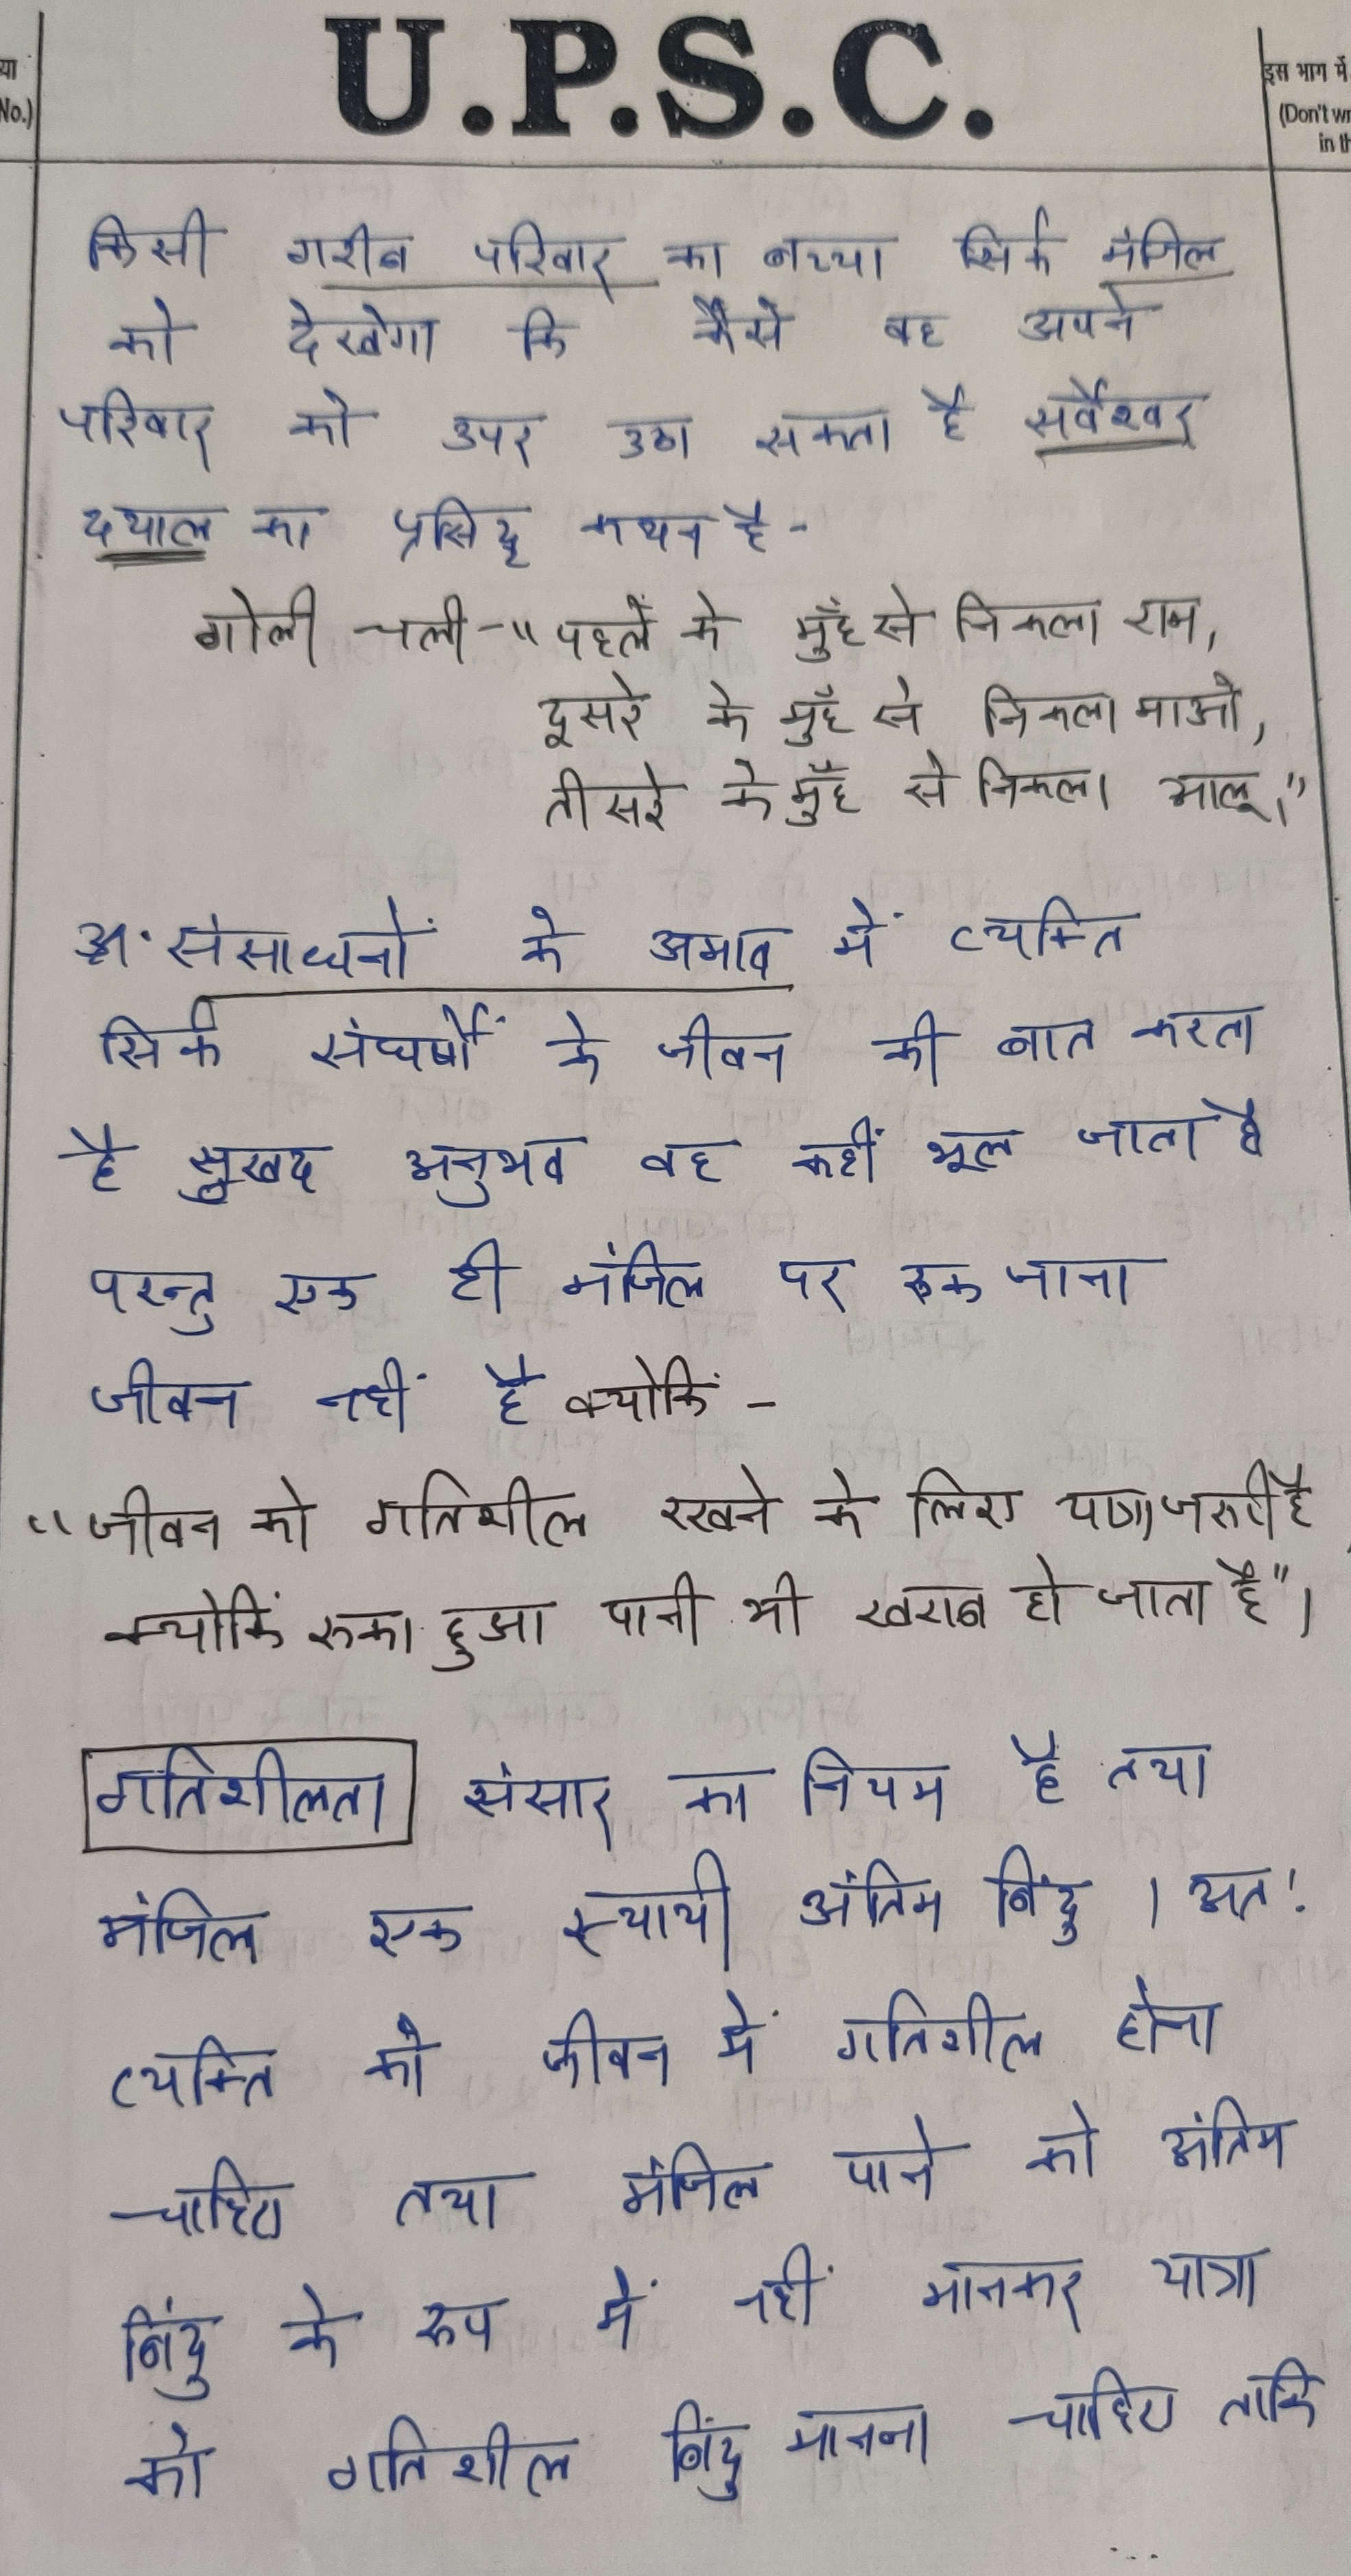 या
No.)
U.P.S.C.
इस भाग में
(Don't wr
in th
किसी गरीब परिवार का बच्चा सिर्फ मंजिल
को देखेगा कि कैसे वह अपने
परिवार को उपर उठा सकता है सर्वेश्वर
दयाल का प्रसिद्ध कथन है -
गोली चली - "पहले के मुँह से निकला राम,
दूसरे के मुँह से निकला माओ,
तीसरे के मुँह से निकला आलू।"
अ. संसाधनों के अभाव में व्यक्ति
सिर्फ संघर्षों के जीवन की बात करता
है सुखद अनुभव वह कहीं भूल जाता है
परन्तु एक ही मंजिल पर रूक जाना
जीवन नहीं है क्योंकि -
"जीवन को गतिशील रखने के लिए यात्रा जरूरी है,
क्योंकि रूका हुआ पानी भी खराब हो जाता है"।
गतिशीलता संसार का नियम है तथा
मंजिल एक स्थायी अंतिम बिंदु । अतः
व्यक्ति को जीवन में गतिशील होना
चाहिए तथा मंजिल पाने को अंतिम
बिंदु के रूप में नहीं मानकर यात्रा
को गतिशील बिंदु मानना चाहिए ताकि
...